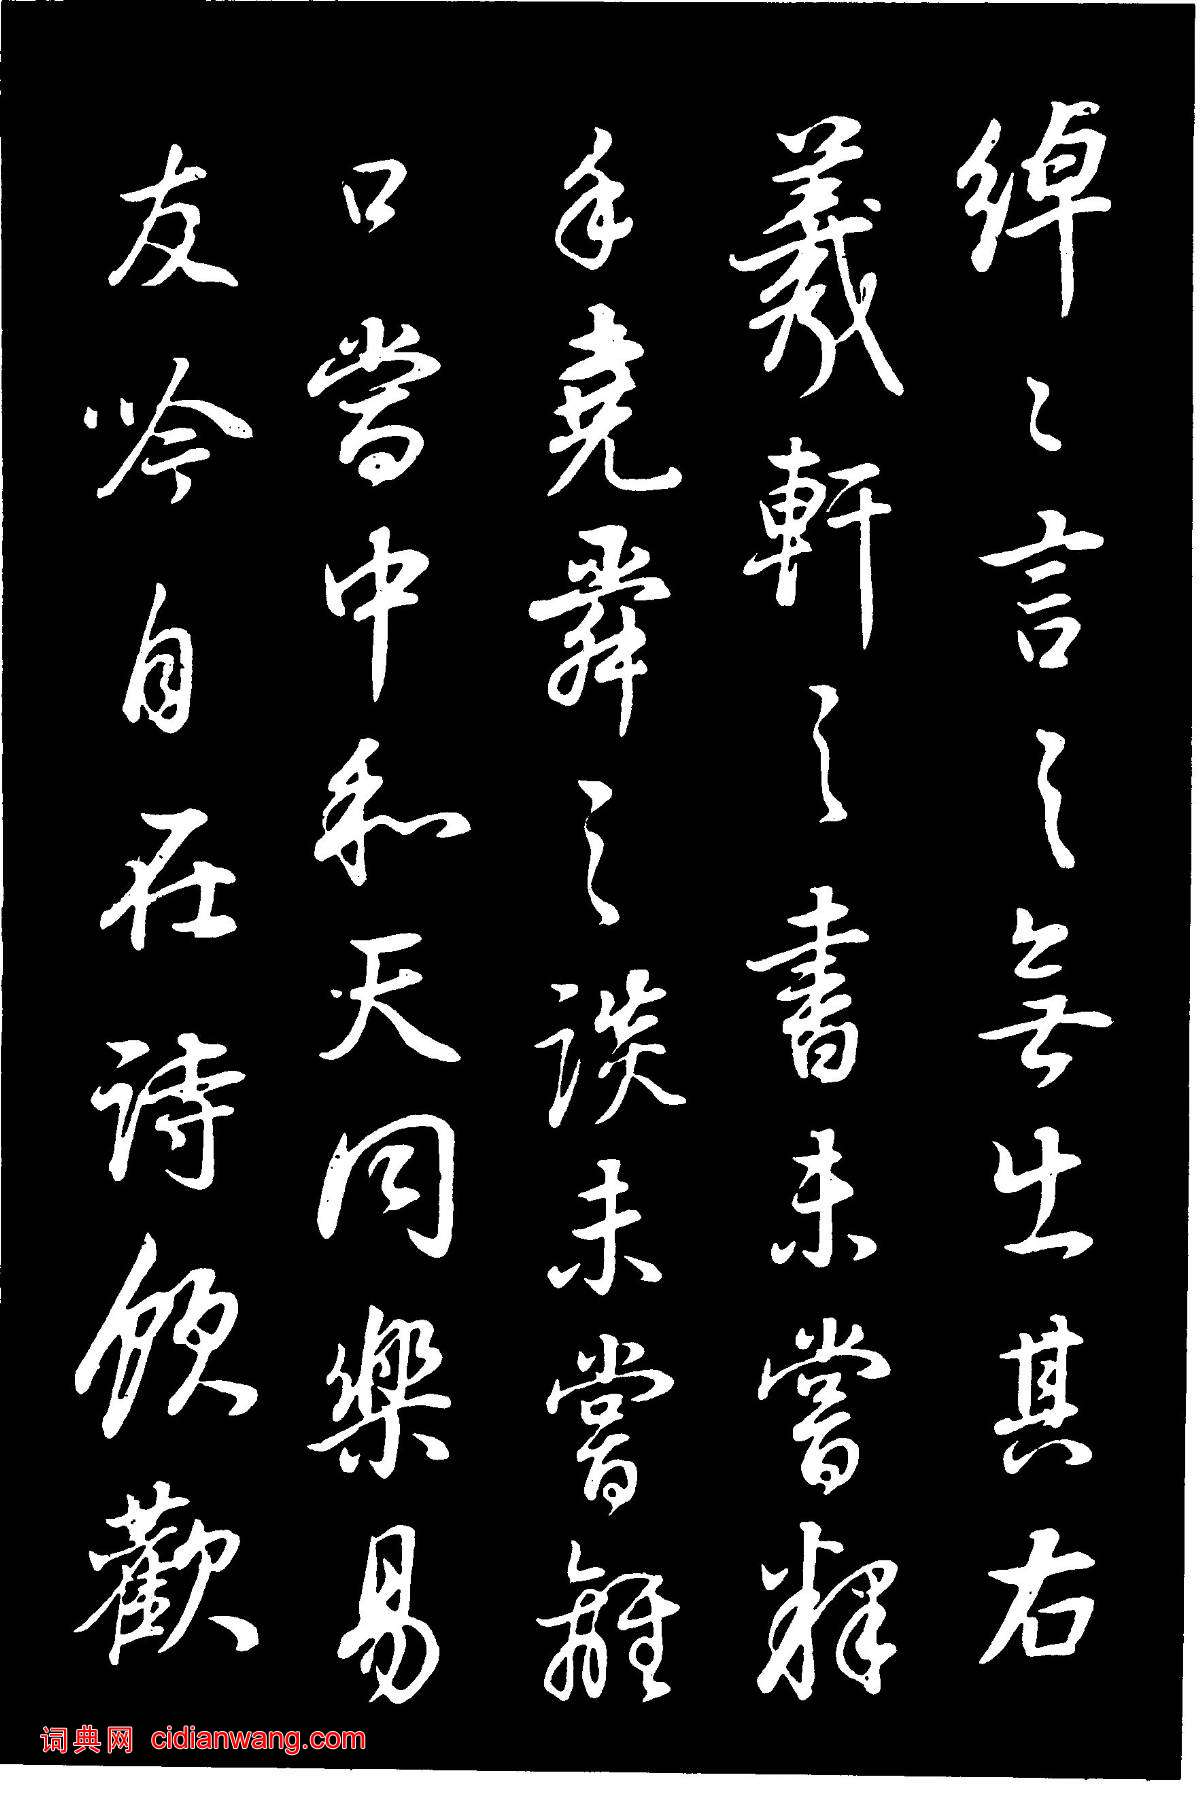 綽々言之無出其右
羲軒之書未嘗釋
手堯舜之談未嘗離
口當中和天同樂易
友吟自在詩飲歡
词典网 cidianwang.com